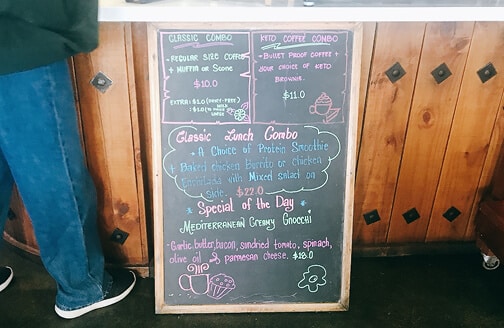 CLASSIC COMBO
- REGULAR SIZE COFFEE
+ MUFFIN OR SCONE
$10.0
EXTRA: $1.0 (DAIRY-FREE)
: $1.0
KETO COFFEE COMBO
- BULLET PROOF COFFEE +
YOUR CHOICE OF KETO
BROWNIE.
$11.0
Classic Lunch Combo
+ A Choice of Protein Smoothie
+ Baked chicken Burrito or chicken
Enchiladas with Mixed salad on
side. $22.0
Special of the Day
MEDITERRANEAN CREAMY GNOCCHI
- Garlic, butter, bacon, sundried tomato, spinach,
olive oil & parmesan cheese. $18.0